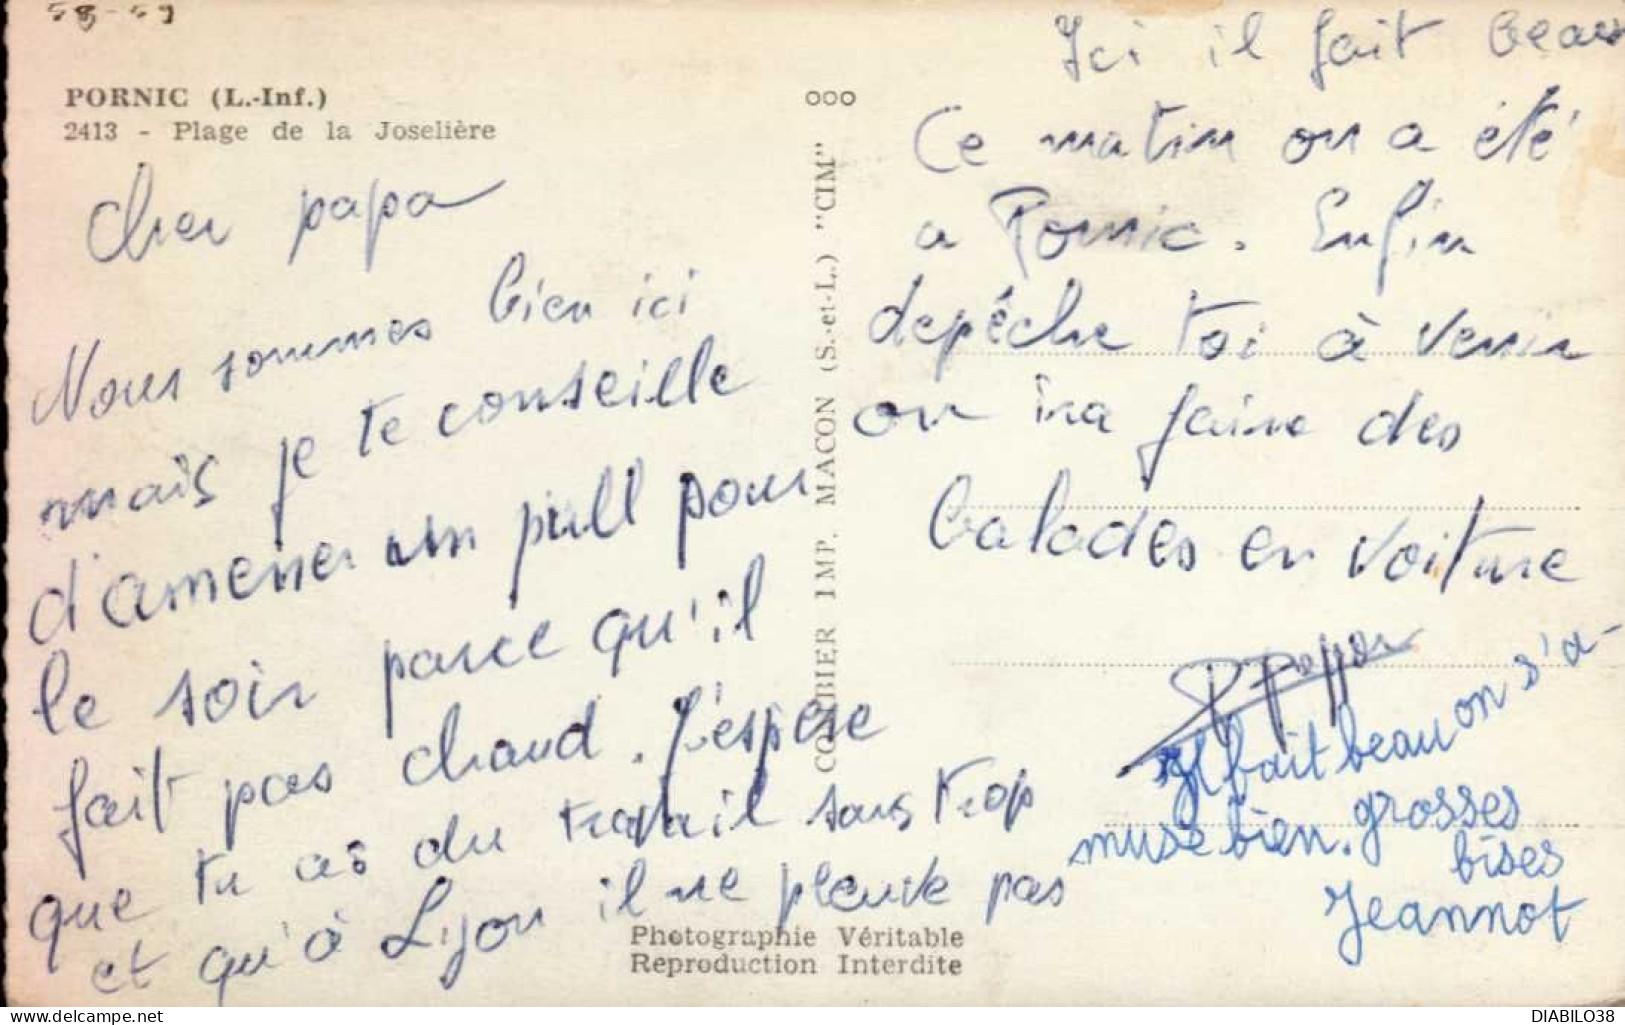 58-59
PORNIC (L.-Inf.)
2413 - Plage de la Joselière
cher papa
Nous sommes bien ici
mais je te conseille
d'amener un pull pour
le soir parce qu'il
fait pas chaud. J'espère
que tu as du travail sans trop
et qu'à Lyon il ne pleuve pas
ooo
COMBIER IMP. MACON (S.-et-L.) "CIM"
Ici il fait beau
Ce matin on a été
a Pornic. Enfin
depéche toi à venir
on ira faire des
balades en voiture
Il fait beau on s'a-
muse bien. grosses
bises
Jeannot
Photographie Véritable
Reproduction Interdite
DIABILO38